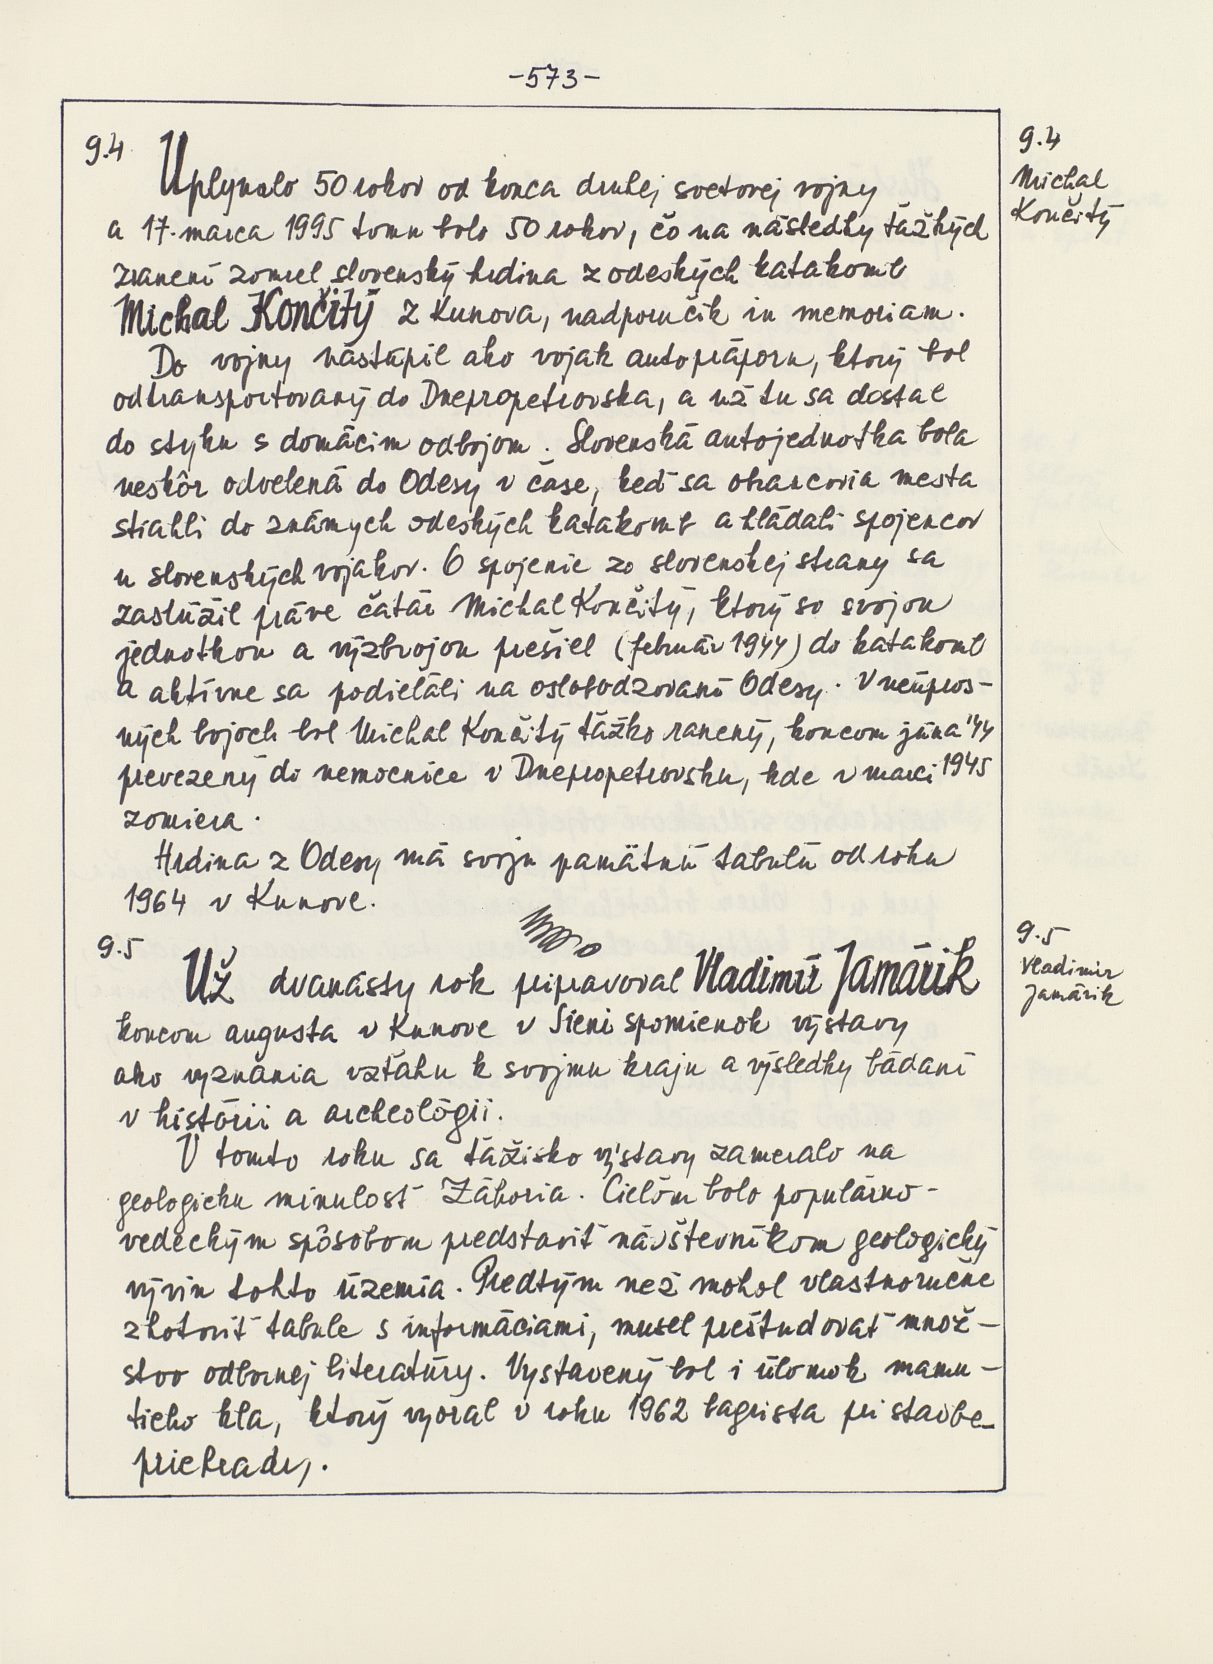 -573-
9.4
Uplynulo 50 rokov od konca druhej svetovej vojny
a 17. marca 1995 tomu bolo 50 rokov, čo na následky ťažkých
zranení zomrel slovenský hrdina z odeských katakomb
Michal Končitý z Kunova, nadporučík in memoriam.
Do vojny nastúpil ako vojak autopráporu, ktorý bol
odtransportovaný do Dnepropetrovska, a už tu sa dostal
do styku s domácim odbojom. Slovenská autojednotka bola
neskôr odvelená do Odesy v čase, keď sa obrancovia mesta
stiahli do známych odeských katakomb a hľadali spojencov
u slovenských vojakov. O spojenie zo slovenskej strany sa
zaslúžil práve čatár Michal Končitý, ktorý so svojou
jednotkou a výzbrojou prešiel (február 1944) do katakomb
a aktívne sa podieľali na oslobodzovaní Odesy. V neúpros-
ných bojoch bol Michal Končitý ťažko ranený, koncom júna '44
prevezený do nemocnice v Dnepropetrovsku, kde v marci 1945
zomiera.
Hrdina z Odesy má svoju pamätnú tabuľu od roku
1964 v Kunove.
9.5
Už dvanásty rok pripravoval Vladimír Jamárik
koncom augusta v Kunove v Sieni spomienok výstavy
ako vyznania vzťahu k svojmu kraju a výsledky bádaní
v histórii a archeológii.
V tomto roku sa ťažisko výstavy zameralo na
geologickú minulosť Záhoria. Cieľom bolo populárno-
vedeckým spôsobom predstaviť návštevníkom geologický
vývin tohto územia. Predtým než mohol vlastnoručne
zhotoviť tabule s informáciami, musel preštudovať množ-
stvo odbornej literatúry. Vystavený bol i úlomok mamu-
tieho kla, ktorý vyoral v roku 1962 bagrista pri stavbe
priehrady.
9.4
Michal
Končitý
9.5
Vladimír
Jamárik